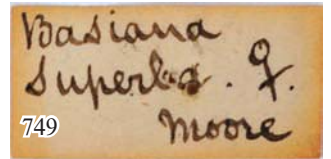 Basiana
Superba. ♀.
Moore
749